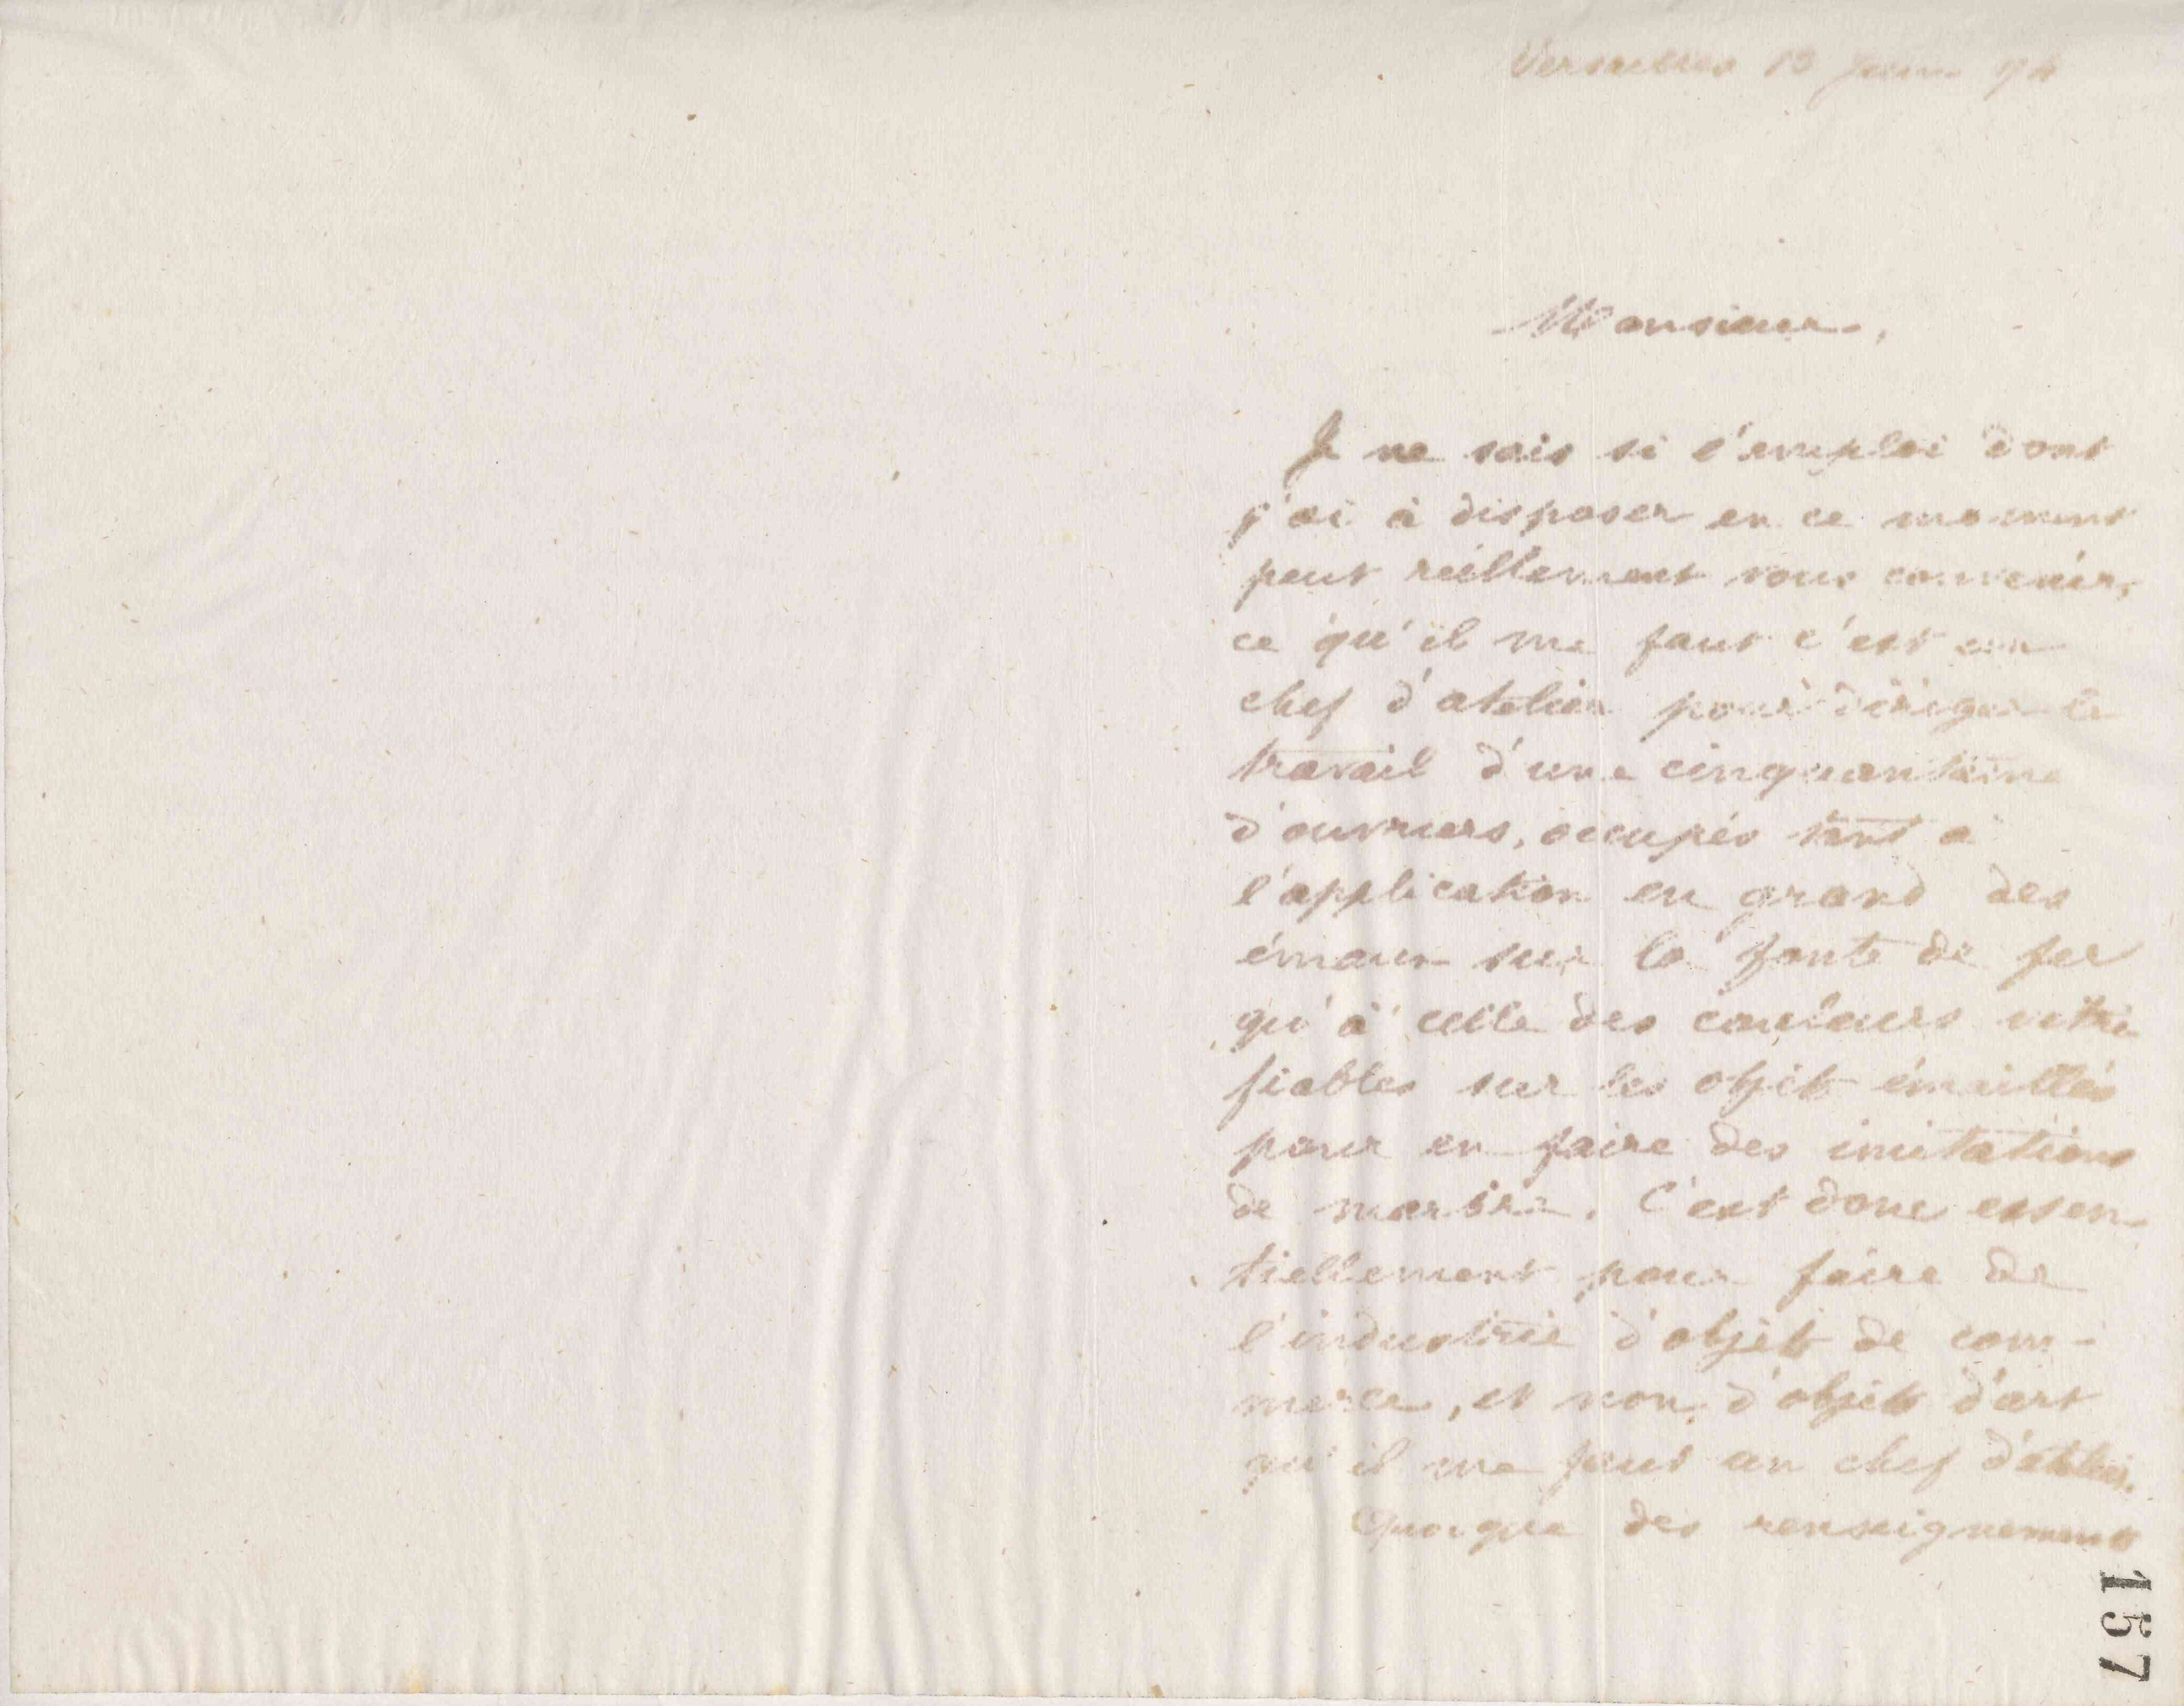 Versailles 13
Monsieur,
Je ne sais si l'emploi dont
j'ai à disposer en ce moment
peut réellement vous convenir,
ce qu'il me faut c'est un
chef d'atelier pour diriger le
travail d'une cinquantaine
d'ouvriers, occupés tant à
l'application en grand des
émaux sur la fonte de fer
qu'à celle des couleurs vitri
fiables sur les objets émaillés
pour en faire des imitations
de marbre. C'est donc essen-
tiellement pour faire de
l'industrie d'objets de com-
merce, et non d'objets d'art
qu'il me faut un chef d'atelier.
Quoique des renseignements
157